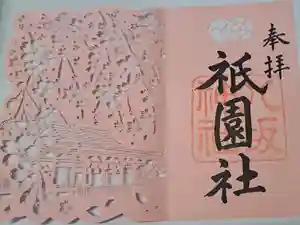 奉拝
祇園社
八坂神社